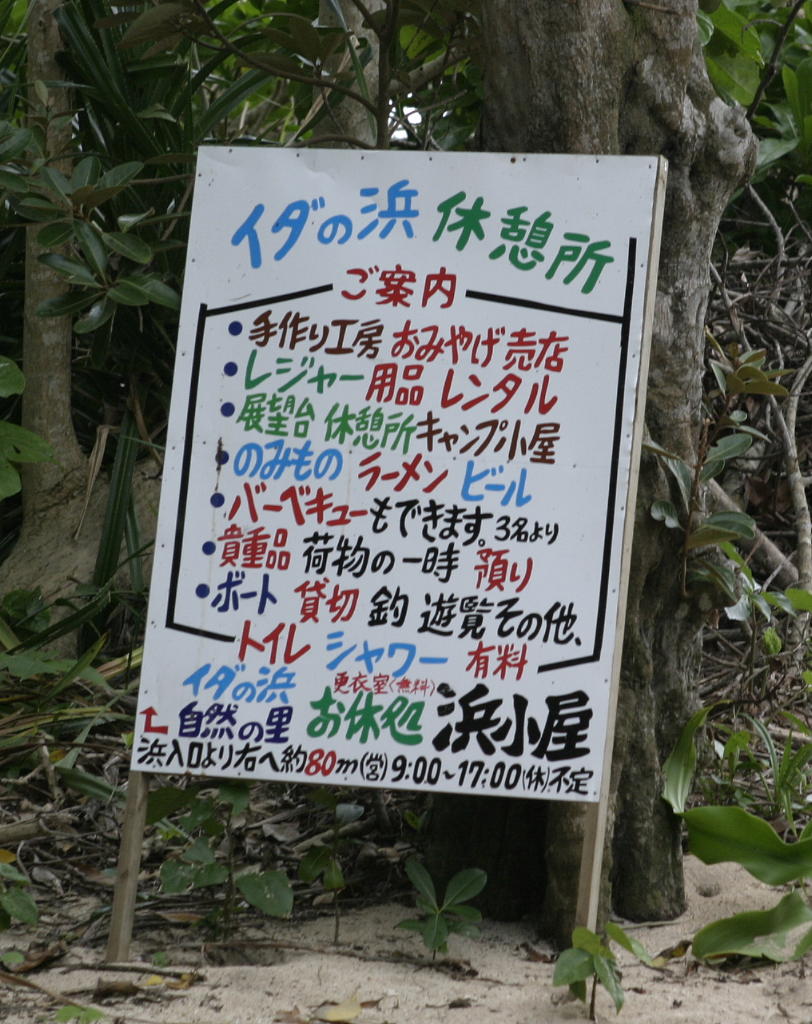 イダの浜 休憩所
ご案内
・手作り工房 おみやげ売店
・レジャー用品 レンタル
・展望台 休憩所 キャンプ小屋
・のみもの ラーメン ビール
・バーベキューもできます。3名より
・貴重品 荷物の一時 預り
・ボート 貸切 釣 遊覧その他、
トイレ シャワー 有料
更衣室(無料)
イダの浜
自然の里 お休処 浜小屋
浜入口より右へ約80m(営)9:00~17:00(休)不定